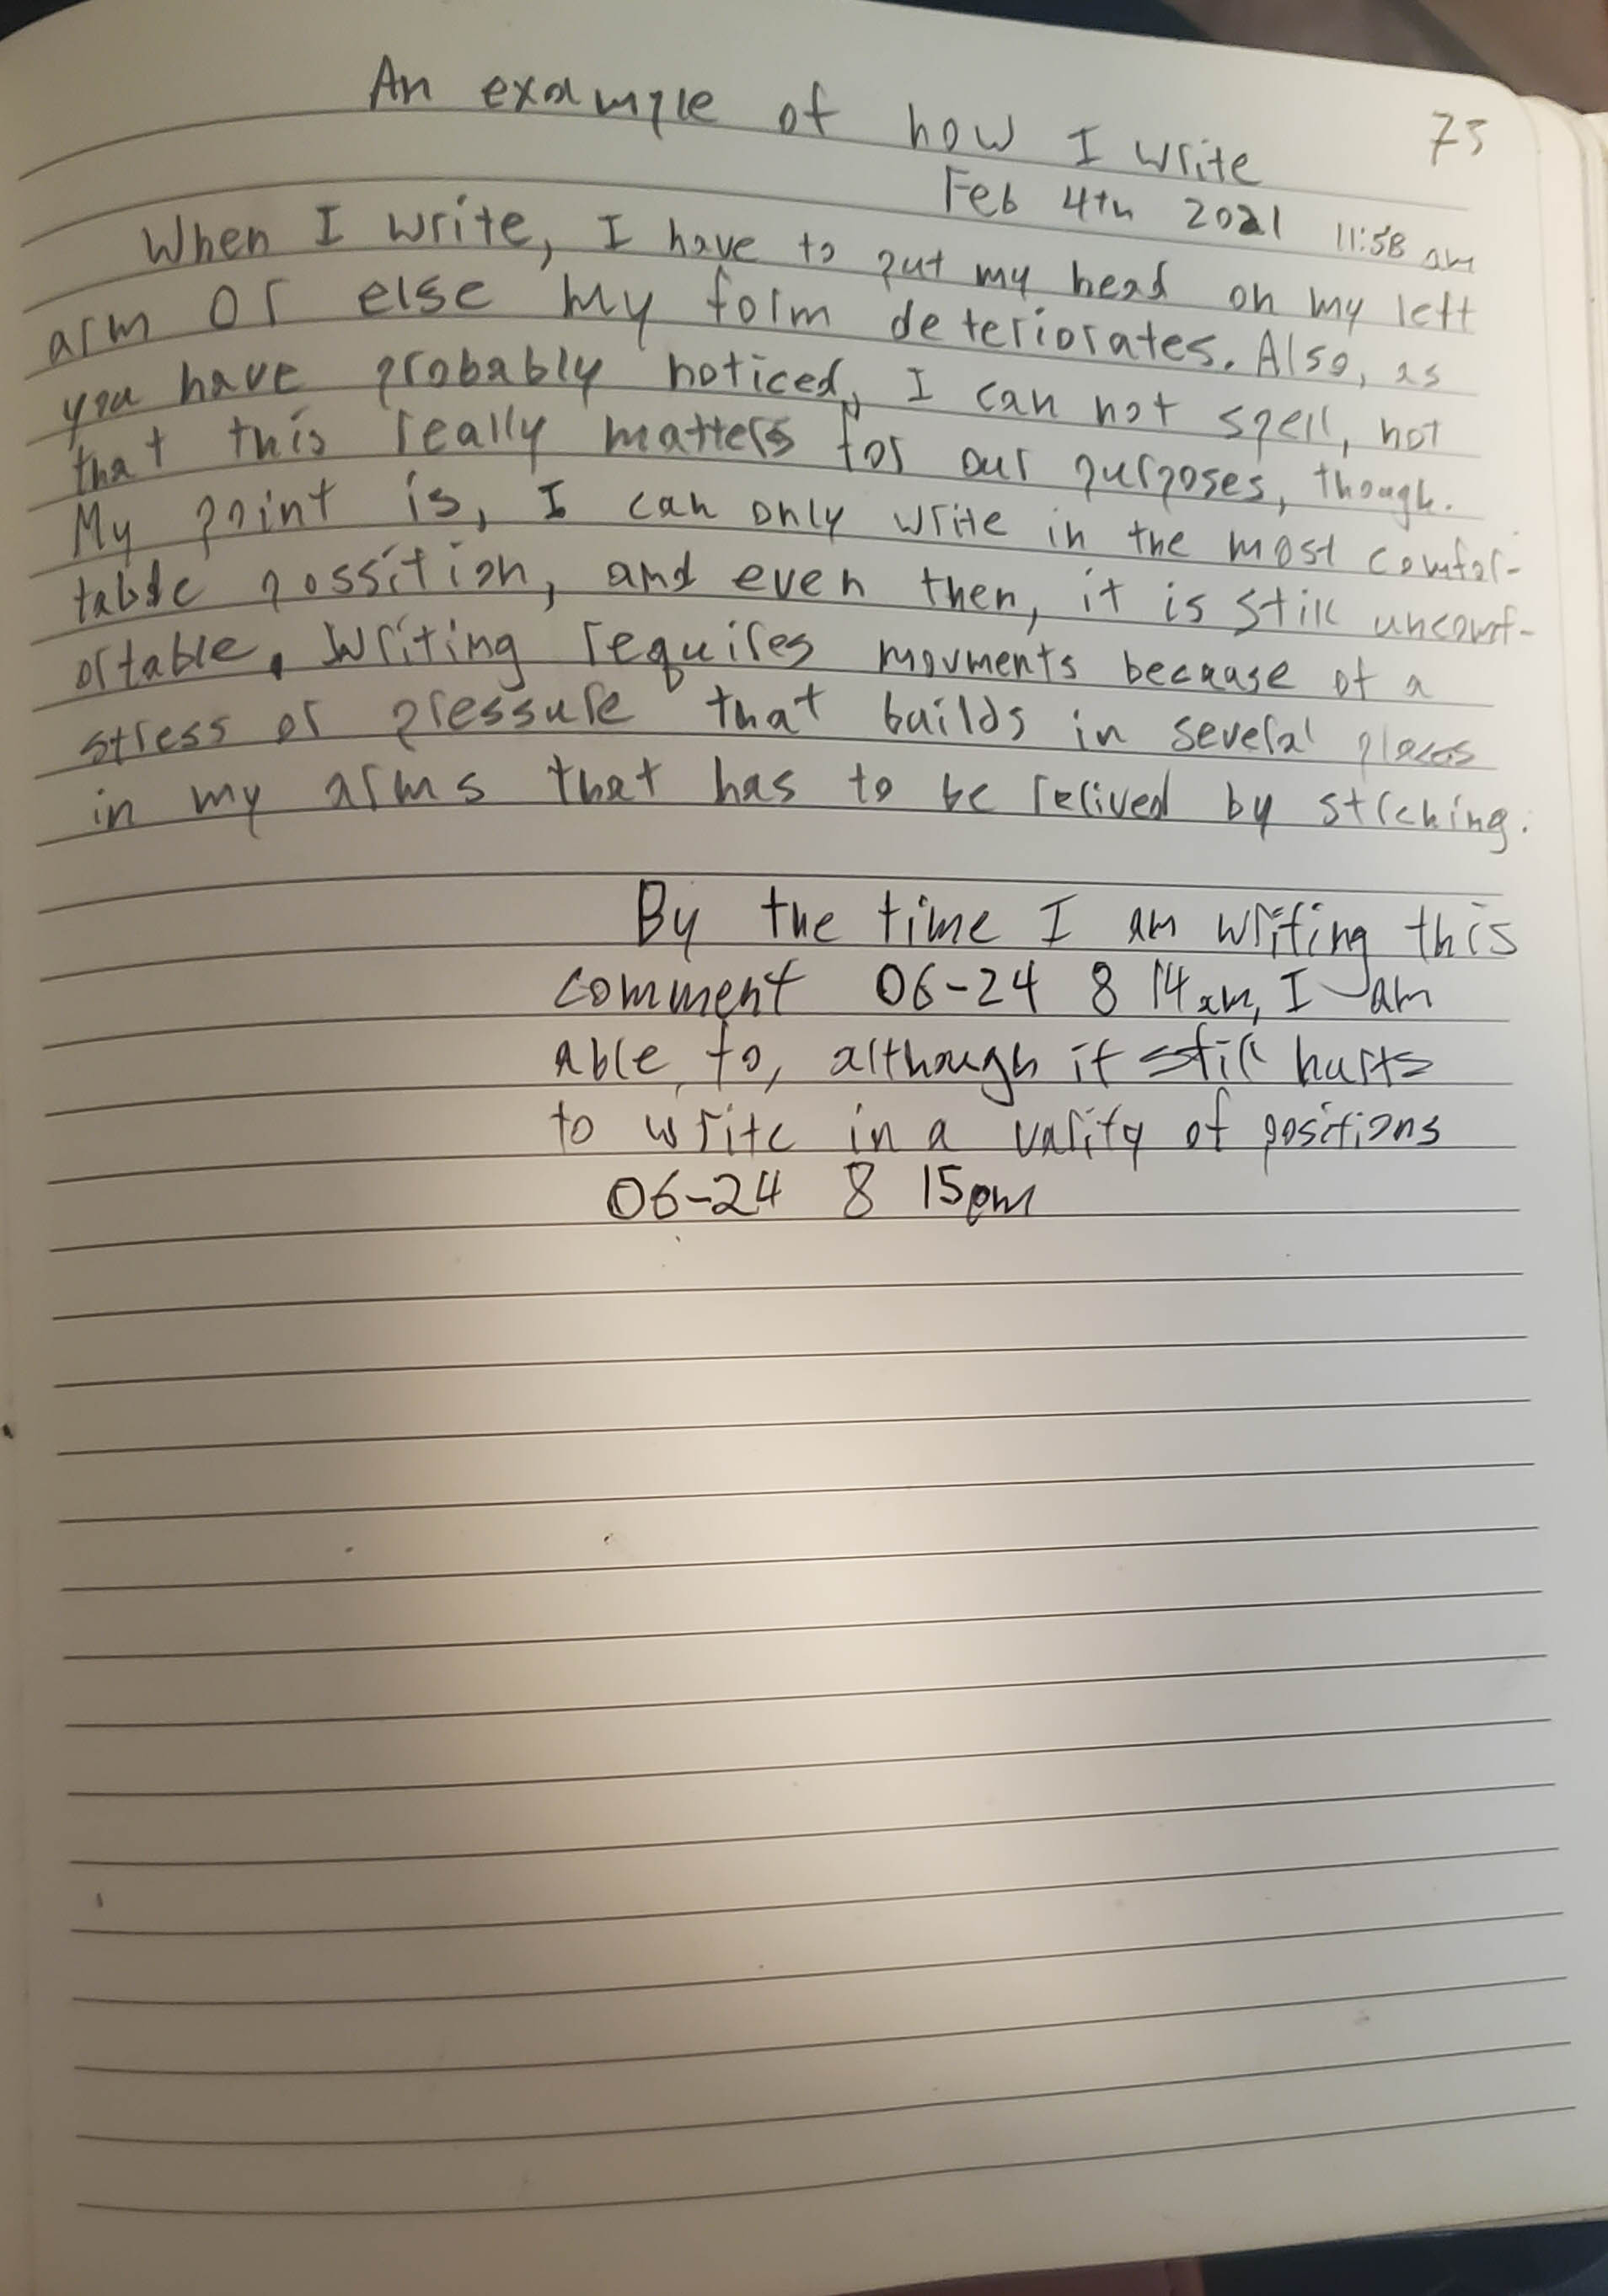 An example of how I write
75
Feb 4th 2021 11:58 am
When I write, I have to put my head on my left
arm or else my form deteriorates. Also, as
you have probably noticed, I can not spell, not
that this really matters for our purposes, though.
My point is, I can only write in the most comfor-
table possition, and even then, it is still uncomf-
ortable. Writing requires movments because of a
stress or pressure that builds in several places
in my arms that has to be relived by strching.
By the time I am writing this
comment 06-24 8 14 am, I am
able to, although it still hurts
to write in a varity of positions
06-24 8 15pm